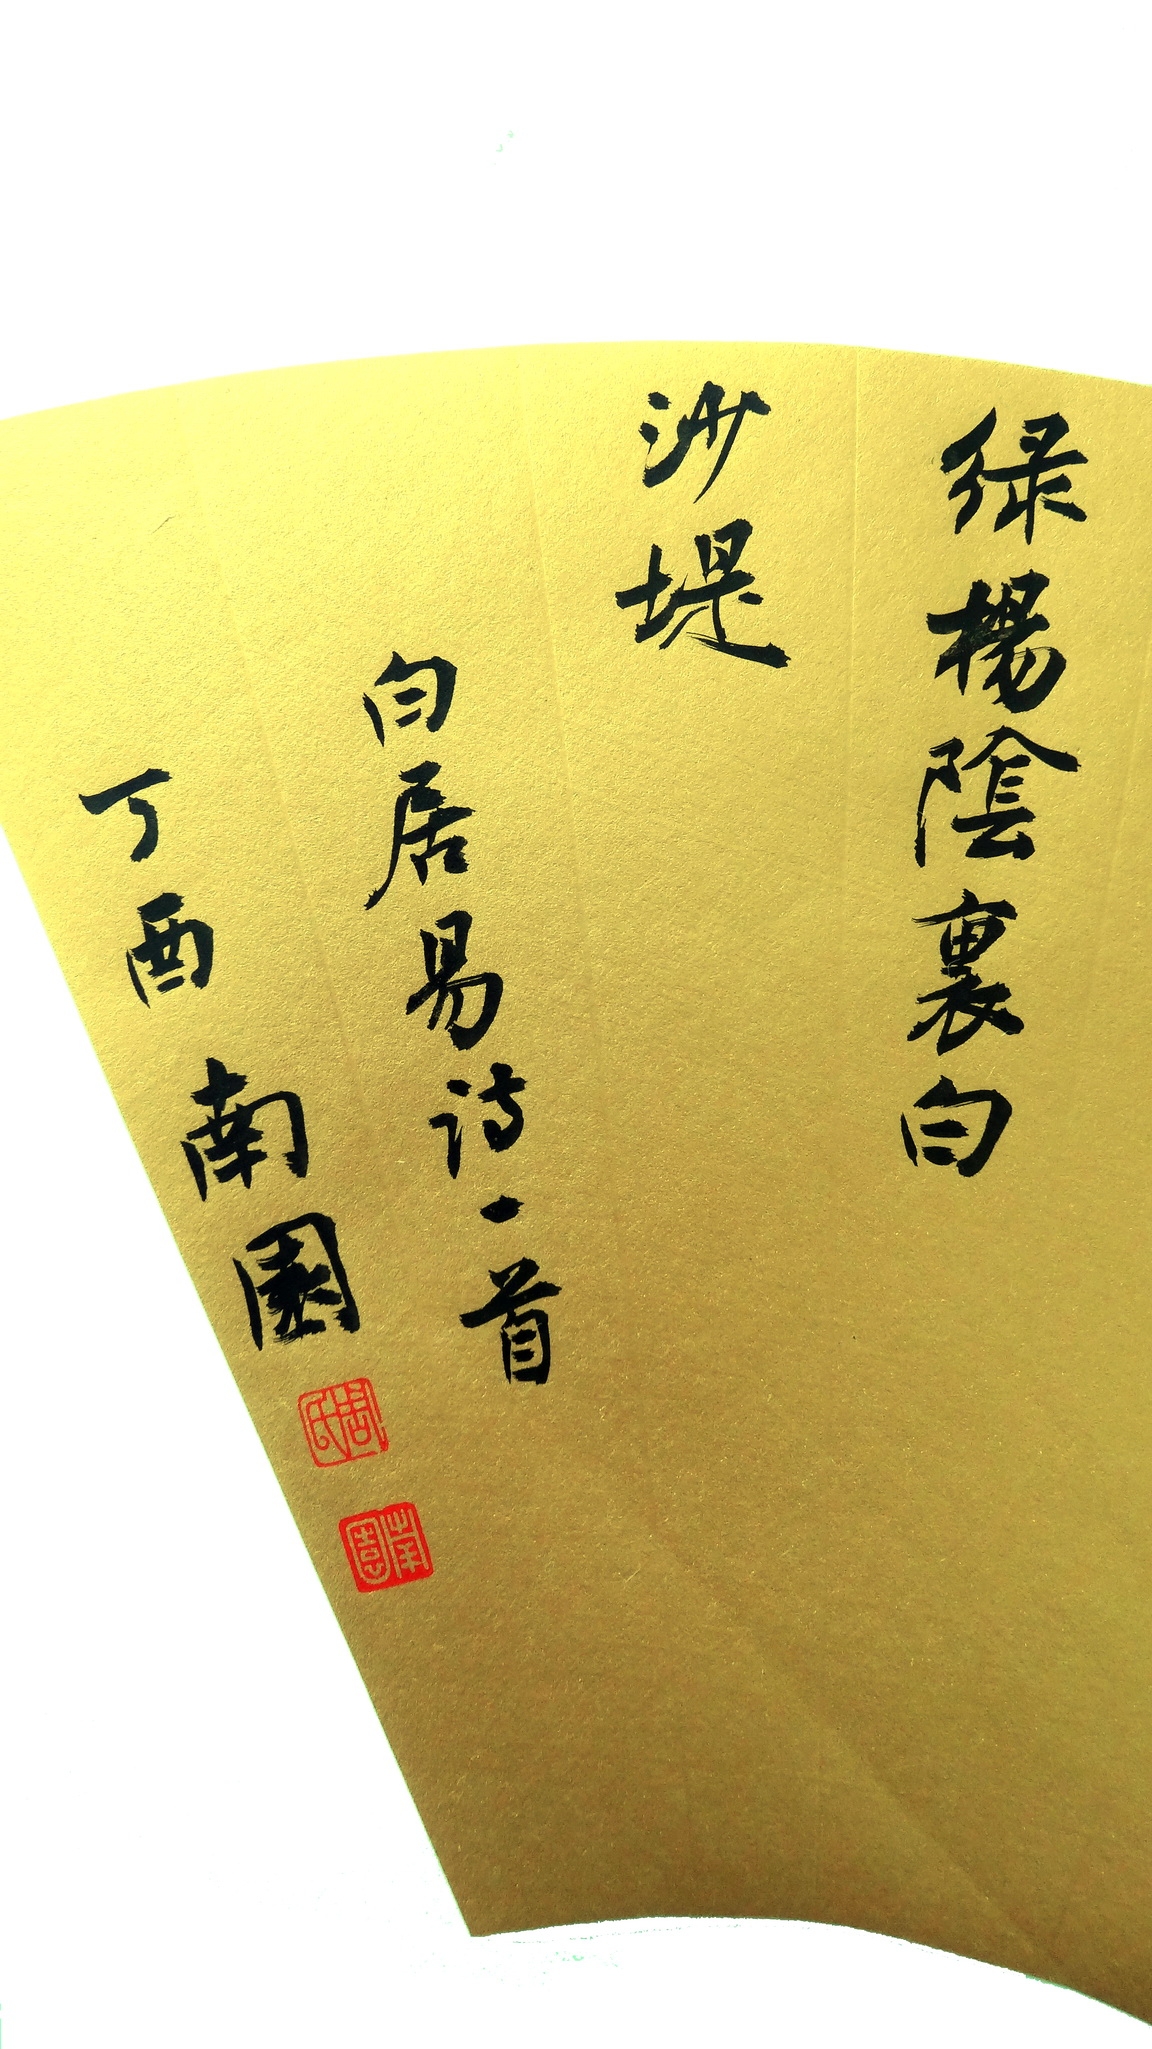 绿楊陰裏白
沙堤
白居易诗一首
丁酉南園
周氏
南園